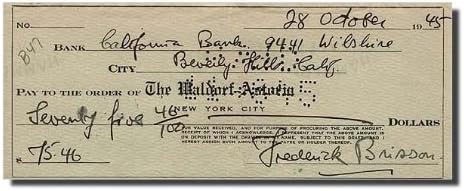 28 October 1945
No.
B47
BANK California Bank 9441 Wilshire
CITY Beverly Hills Calif.
PAY TO THE ORDER OF The Waldorf-Astoria
NEW YORK CITY
Seventy five 46/100 DOLLARS
FOR VALUE RECEIVED, AND FOR PURPOSE OF PROCURING THE ABOVE AMOUNT,
RECEIPT OF WHICH I ACKNOWLEDGE, I REPRESENT THAT THE ABOVE AMOUNT IS
ON DEPOSIT WITH THE DRAWEE IN MY NAME, SUBJECT TO THIS DRAFT AND I
HEREBY ASSIGN SUCH AMOUNT TO THE PAYEE OR HOLDER THEREOF.
$ 75.46 Frederick Brisson.